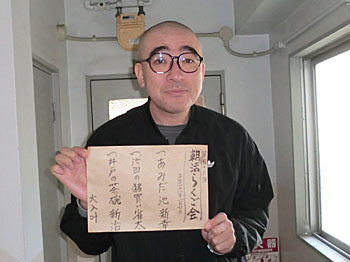 朝活らくご会
一、あみだ池 新幸
一、池田の猪買い 雀太
一、井戸の茶碗 新治
大入叶